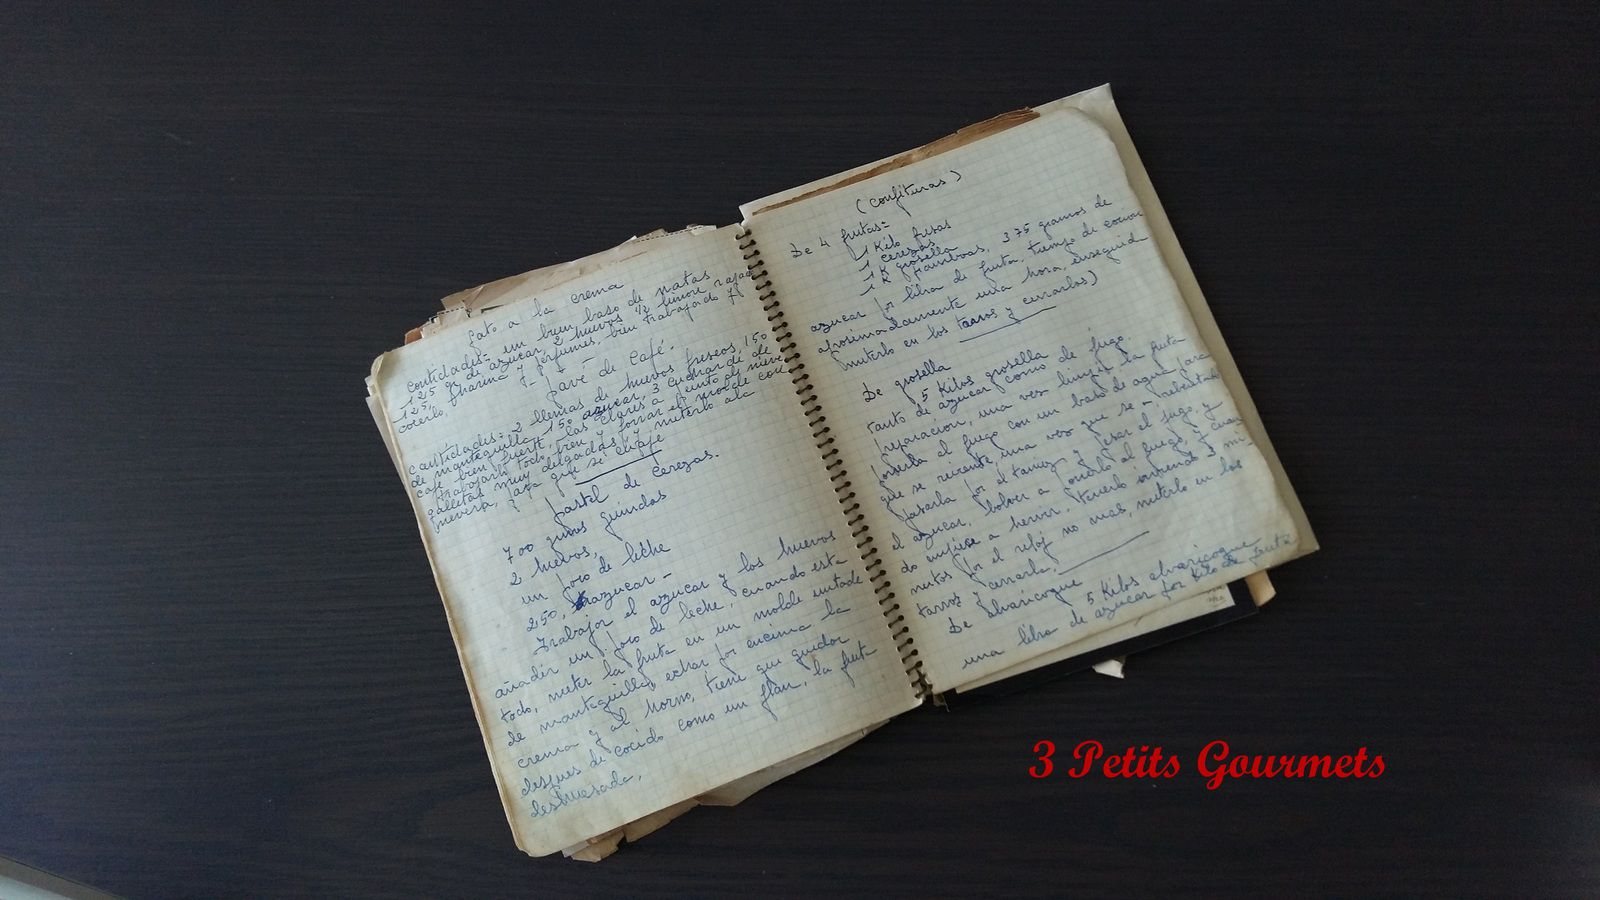 Gato a la crema
Contidades= um buen baso de natas
125 gr de azucar, 2 huevos 1/2 limone rajado
125, Fharina y perfumes, bien trabajado y
cocerlo,
Pavé de Café.
Cantidades: 2 llemas de huevos frescos, 150
de mantequilla, 150 azucar, 3 cucharde de
café bien fuerte, las clares a punta de nieve
trabajarlo todo bien y forrar el molde con
galletas muy delgadas y y meterlo a la
nevera, para que se cuaje
Pastel de Cerezas.
700 gumos guindas
2 huevos,
un poco de leche
250, azucar -
Trabajar el azucar y los huevos
añadir un poco de leche, cuando esta
todo, meter la fruta en un molde untade
de mantequilla, echar por encima la
crema y al horno, tiene que quedar
despues de cocido como un flan, la fruta
desbuesada,
(Confituras)
De 4 frutas=
1 Kilo fresas
1 cerezas
1 K grosella
1 K
azucar por libra de fruta, tiempo de
aprosimadamente una hora, enseguid
miterlo en los tarros y cerrarlos)
De grosella
5 Kilos grosella de fugo.
tanto de azucar como
preparacion, una vez limpia la fruta
ponerla el fuego con un baso de agua para
que se reviente una vez que se - rebentado
pasarla por el tamiz, y pesar el fugo, y
el azucar, bolver a ponerlo al fuego, y cuan
do enpiece a hervir, tenerlo irviendo 3 mi-
nutos por el reloj no mas, miterlo en los
tarros y cerrarla,
De alvaricoque
5 Kilos alvaricoque
una libra de azucar por Kilo de fruta
3 Petits Gourmets